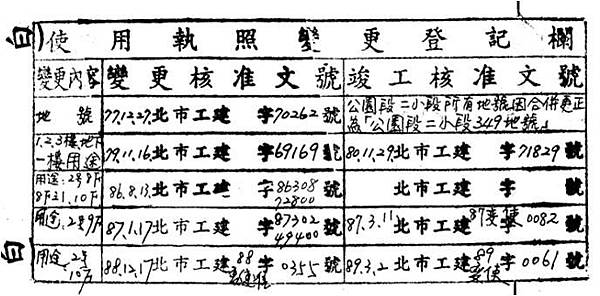 使用執照變更登記欄
變更內容 變更核准文號 竣工核准文號
地號 77.12.27.北市工建 字70262號 公園段二小段所有地號因合併更正
為「公園段二小段349地號」
1.2.3樓地下
一樓用途 79.11.16.北市工建 字69169號 80.11.29.北市工建 字71829號
用途:2號8F
8F21.10F 86.8.13.北市工建 字86308
72800號 北市工建 字 號
用途:2號9F 87.1.17北市工建 字87302
49400號 87.3.11北市工建 87變使字0082號
用途:2號
10F 88.12.17北市工建 88字0355號 89.3.2北市工建 89變使字0061號